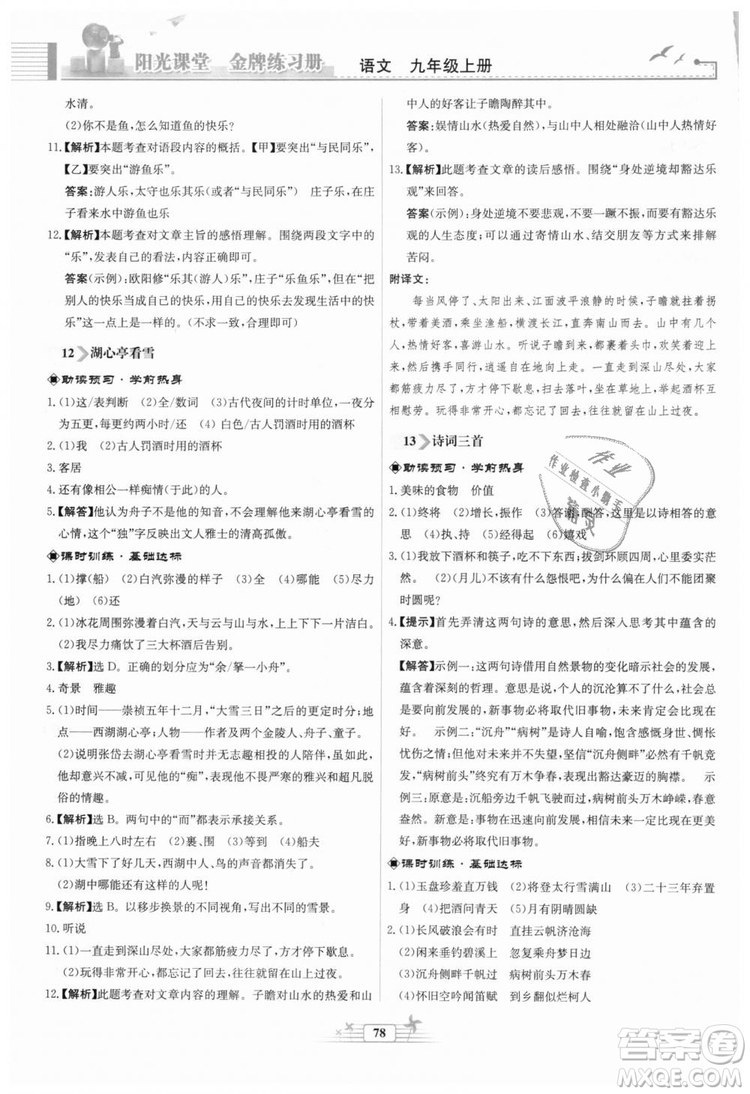 阳光课堂 金牌练习册 语文 九年级上册
水清。
(2)你不是鱼,怎么知道鱼的快乐?
11.【解析】本题考查对语段内容的概括。【甲】要突出“与民同乐”,
【乙】要突出“游鱼乐”。
答案:游人乐,太守也乐其乐(或“与民同乐”) 庄子乐,在庄
子看来水中游鱼也乐。
12.【解析】本题考查对文章主旨的感悟理解。围绕两段文字中的
“乐”,发表自己的看法。
答案(示例):欧阳修“乐其(游人)乐”,庄子“乐鱼乐”,都是“把
别人的快乐当成自己的快乐,自己快乐,也想象着别人快乐”,
这一点上是一样的。(不求一致,合理即可)
12 湖心亭看雪
助读预习·学前热身
1.(1)这/表判断 (2)全/数词 (3)古代夜间的计时单位,一夜分
为五更,每更约两小时/还 (4)穿/裹,围
2.(1)我 (2)古人罚酒时用的酒杯
3.客居
4.还有像相公一样痴情(于此)的人呢。
5.【解答】作者认为舟子不是他的知音,不能理解他湖心亭看雪的
心情,这个“独”字反映出文人雅士的清高孤傲。
课时训练·基础达标
1.(1)撑(船) (2)白汽弥漫的样子 (3)全 (4)想到 (5)尽力
(地) (6)还
2.(1)冰花周围弥漫着白汽,天与云与山与水,上上下下一片洁白。
(2)(我)尽力(痛快)地喝了三大杯酒然后告别。
3.【解析】选D。正确的划分应为“余/拏一小舟”。
4.奇景 雅趣
5.(1)时间——崇祯五年十二月,“大雪三日”之后的更定时分;地
点——西湖湖心亭;人物——作者及两个金陵人、舟子、童子。
(2)说明张岱去湖心亭看雪时并无志趣相投的人陪伴,虽属遗
憾,却更能表现他不畏严寒的雅兴和超凡脱俗、孤芳自赏
的情趣。
6.【解析】选B。两句中的“而”都表示承接关系。
7.(1)指晚上八时左右 (2)裹、围 (3)等到 (4)船夫
8.(1)大雪下了三天,西湖中行人、飞鸟的声音都消失了。
(2)(那个)喝酒的人拉着我一同喝酒。
9.【解析】选B。以移步换景的写作顺序进行写作。
10.听说
11.(1)一直走到深山尽头,大家都沿着曲折的山路才停下歇息。
(2)玩得非常开心,都忘记了(要)回去,往往就在山上过夜。
12.【解析】此题考查对文章内容的理解。子瞻对山水的热爱和山
中人的好客让子瞻陶醉其中。
答案:娱情山水(热爱自然),与山中人相处融洽(山中人热情好
客)
13.【解析】此题考查文章的读后感悟。围绕“身处逆境却豁达乐
观”写出感悟即可。
答案(示例):身处逆境不要悲观,不要一味消沉,要有豁达乐观
的人生态度;可以通过寄情山水、结交朋友等方式排解
苦闷。
附译文:
每当风停了、太阳出来、江面波平浪静的时候,子瞻就拄着拐
杖,带着美酒,乘坐渔船,横渡长江,向南山而去。山中有几个人,
热情好客,喜游山水。听说子瞻到了,都裹着头巾,欢笑着迎上
来,然后携手同行,逍遥自在地向上走。一直走到深山尽头,大家
都精疲力尽了,方才停下歇息,扫去落叶,坐在草地上,举起酒杯互
相慰劳。玩得非常开心,都忘记了(要)回去,往往就在山上过夜。
13 诗词三首
助读预习·学前热身
1.美味的食物 价值
2.(1)终将,终究 (2)增长,振作 (3)答谢,酬答,这里是以诗相答的
意思 (4)执,持 (5)经得起 (6)嬉戏
3.(1)我放下酒杯和筷子,吃不下东西;拔出剑环顾四周,心里一片
茫然。 (2)(月儿)不该有什么怨恨吧,为什么偏在人们不能团聚
时圆呢?
4.【提示】首先弄清这两句诗的意思,然后深入思考其中蕴含的
深意。
【解答】示例一:这两句诗借用自然景物的变化暗示社会的发展,
蕴含着深刻的哲理。客观世界在不断发展,个人的沉沦算不了什
么,社会总是要向前发展的,新事物必将取代旧事物,未来肯定比
现在好。 示例二:“沉舟”“病树”是诗人自喻,感伤世事变迁,惆怅
忧伤之情油然而生。但诗人并不失望,坚信“沉舟侧畔”会有千帆竞
发,“病树前头”终有万木争春,反映出诗人豁达豪迈的胸襟。 示
例三:沉船旁边正有千艘船驶过,病树前头万木峥嵘,一派春色。
我们不要因为暂时的不幸而忧伤,要奋起直追,社会是向前发展的,
新事物必将取代旧事物。
课时训练·基础达标
1.(1)玉盘珍羞直万钱 (2)将登太行雪满山 (3)二十三年弃置
身 (4)把酒问青天 (5)月有阴晴圆缺
2.(1)长风破浪会有时 直挂云帆济沧海
(2)闲来垂钓碧溪上 忽复乘舟梦日边
(3)沉舟侧畔千帆过 病树前头万木春
(4)怀旧空吟闻笛赋 到乡翻似烂柯人
78
作业
作业检查小帮手
答案圈